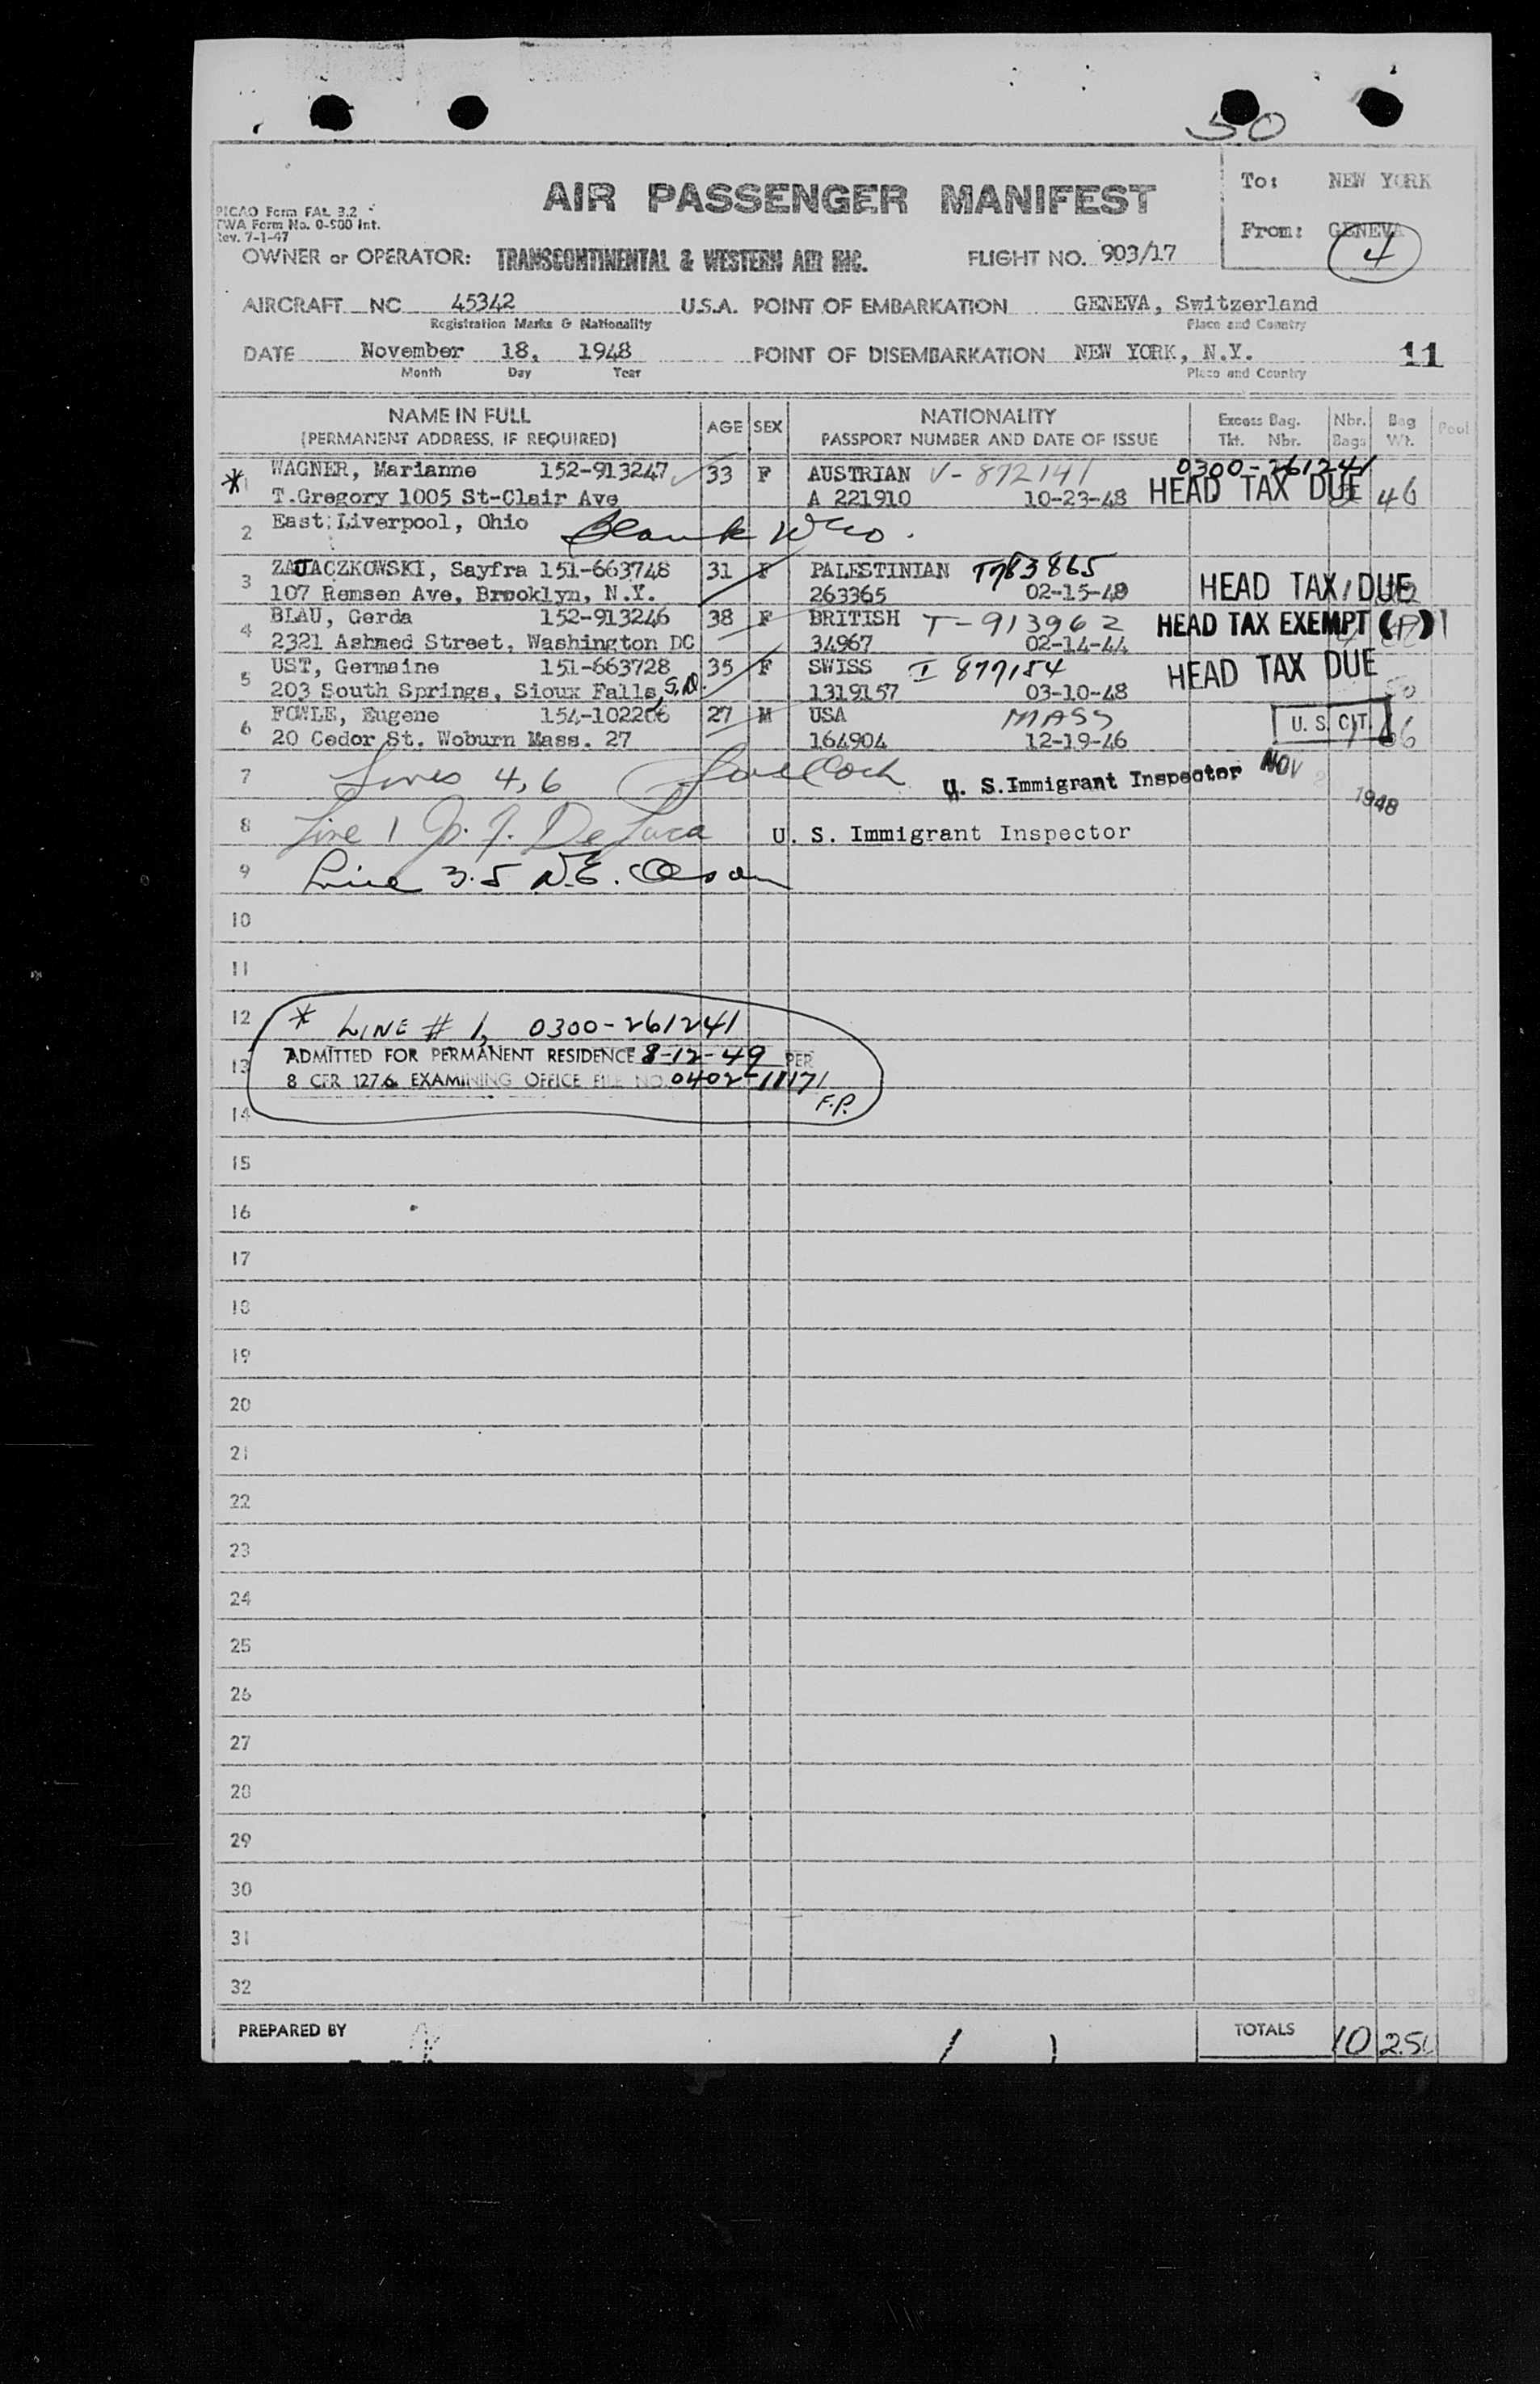 50
To: NEW YORK
AIR PASSENGER MANIFEST
PICAO Form FAL 3.2
TWA Form No. 0-500 Int.
Rev. 7-1-47
From: GENEVA
4
OWNER or OPERATOR: TRANSCONTINENTAL & WESTERN AIR INC. FLIGHT NO. 903/17
AIRCRAFT NC 45342 U.S.A. POINT OF EMBARKATION GENEVA, Switzerland
Registration Marks & Nationality Place and Country
DATE November 18, 1948 POINT OF DISEMBARKATION NEW YORK, N.Y. 11
Month Day Year Place and Country
NAME IN FULL AGE SEX NATIONALITY Excess Bag. Nbr. Bag Pool
(PERMANENT ADDRESS, IF REQUIRED) PASSPORT NUMBER AND DATE OF ISSUE Tkt. Nbr. Bags Wt.
* 1 WAGNER, Marianne 152-913247 33 F AUSTRIAN V-872141 0300-261241
T.Gregory 1005 St-Clair Ave A 221910 10-23-48 HEAD TAX DUE 46
2 East Liverpool, Ohio Blank
3 ZAJACZKOWSKI, Sayfra 151-663748 31 F PALESTINIAN T783865
107 Remsen Ave, Brooklyn, N.Y. 263365 02-15-48 HEAD TAX DUE
4 BLAU, Gerda 152-913246 38 F BRITISH T-913962 HEAD TAX EXEMPT
2321 Ashmed Street, Washington DC 34967 02-14-44
5 UST, Germaine 151-663728 35 F SWISS I 877154 HEAD TAX DUE
203 South Springs, Sioux Falls, S.D. 1319157 03-10-48
6 FOWLE, Eugene 154-102206 27 M USA MASS U. S. CIT.
20 Cedor St. Woburn Mass. 27 164904 12-19-46
7 Lines 4,6 U. S. Immigrant Inspector NOV 1948
8 Line 1 De Luca U. S. Immigrant Inspector
9 Line 3.5 N.E. Olson
10
11
12 * LINE # 1, 0300-261241
13 ADMITTED FOR PERMANENT RESIDENCE 8-12-49 PER
8 CFR 127.6 EXAMINING OFFICE FILE NO. 0402-11171
14 F.P.
15
16
17
18
19
20
21
22
23
24
25
26
27
28
29
30
31
32
PREPARED BY TOTALS 10